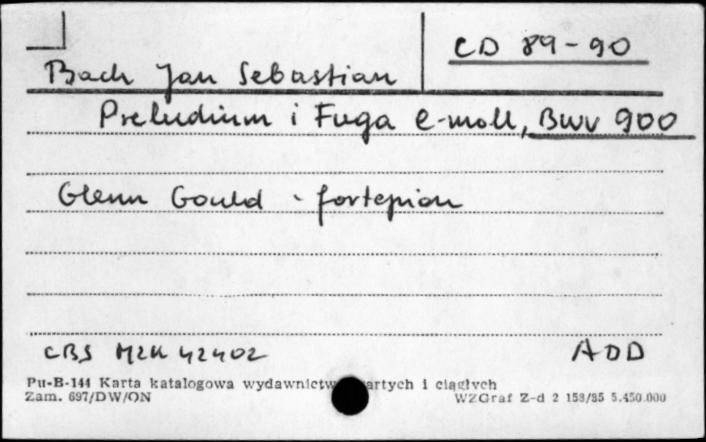 CD 89-90
Bach Jan Sebastian
Preludium i Fuga e-moll, BWV 900
Glenn Gould - fortepian
CBS M2K 42402
ADD
Pu-B-144 Karta katalogowa wydawnictw i ciągłych
Zam. 697/DW/ON
WZGraf Z-d 2 153/85 5.450.000